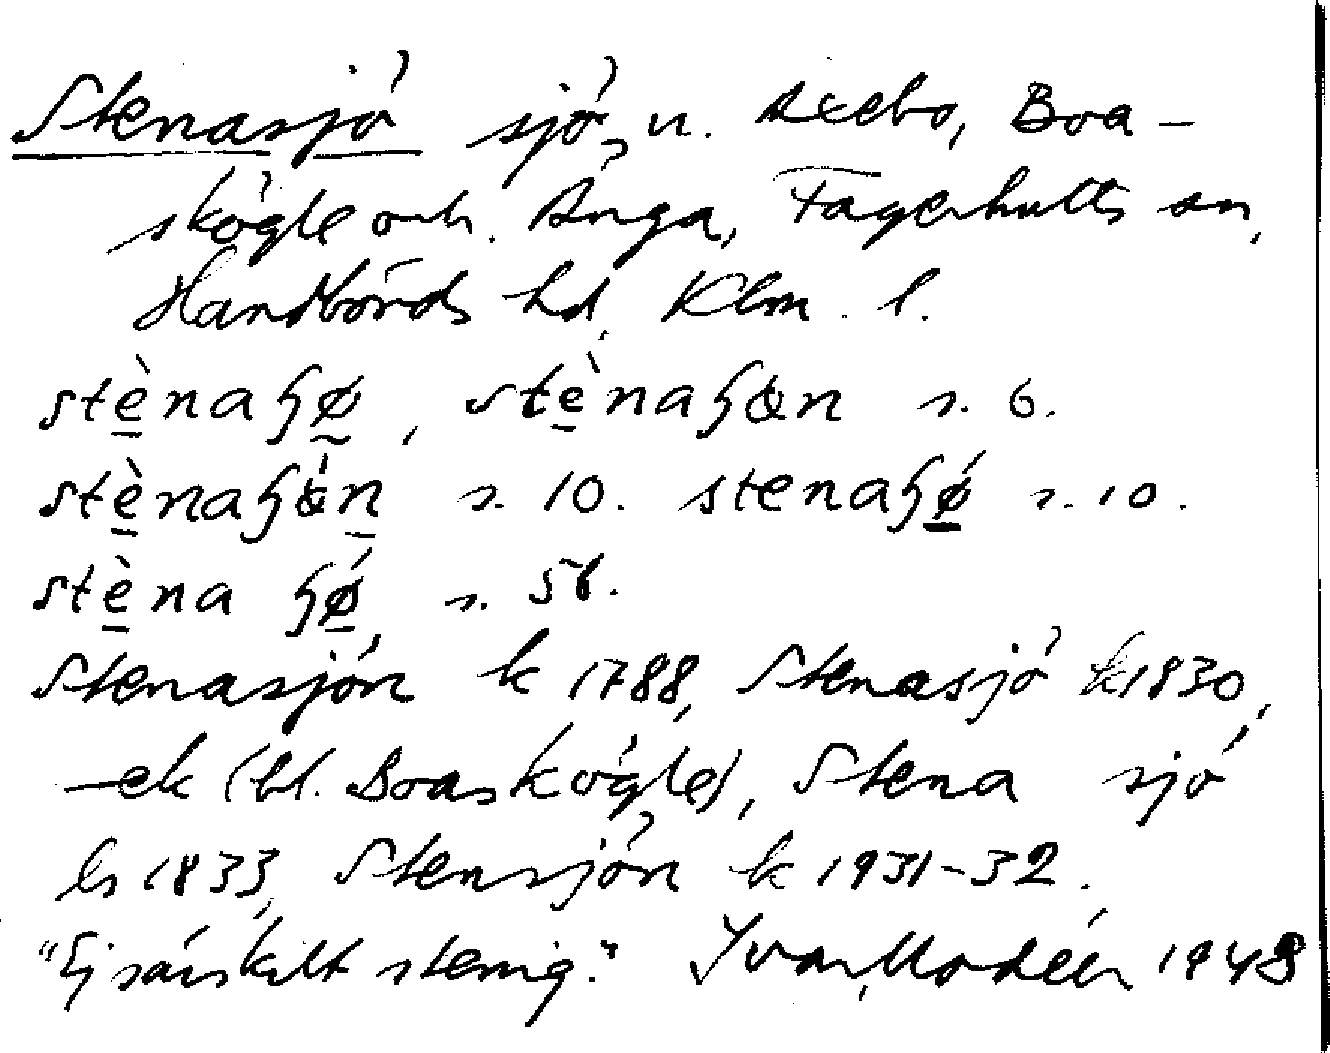 Stenasjö sjö, n. Axebo, Boa-
skögle och Änga, Fagerhults sn,
Handbörds hd, Klm. l.
stènaɧø, stènaɧøn s. 6.
stènaɧø̀n s. 10. stenaɧǿ s. 10.
stèna ɧǿ, s. 56.
Stenasjön k 1788, Stenasjö k 1830,
– ek (bl. Boaskögle), Stena sjö
ls 1833, Stensjön k 1931-32.
"Ej särskilt stenig." Ivar Modéer 1948